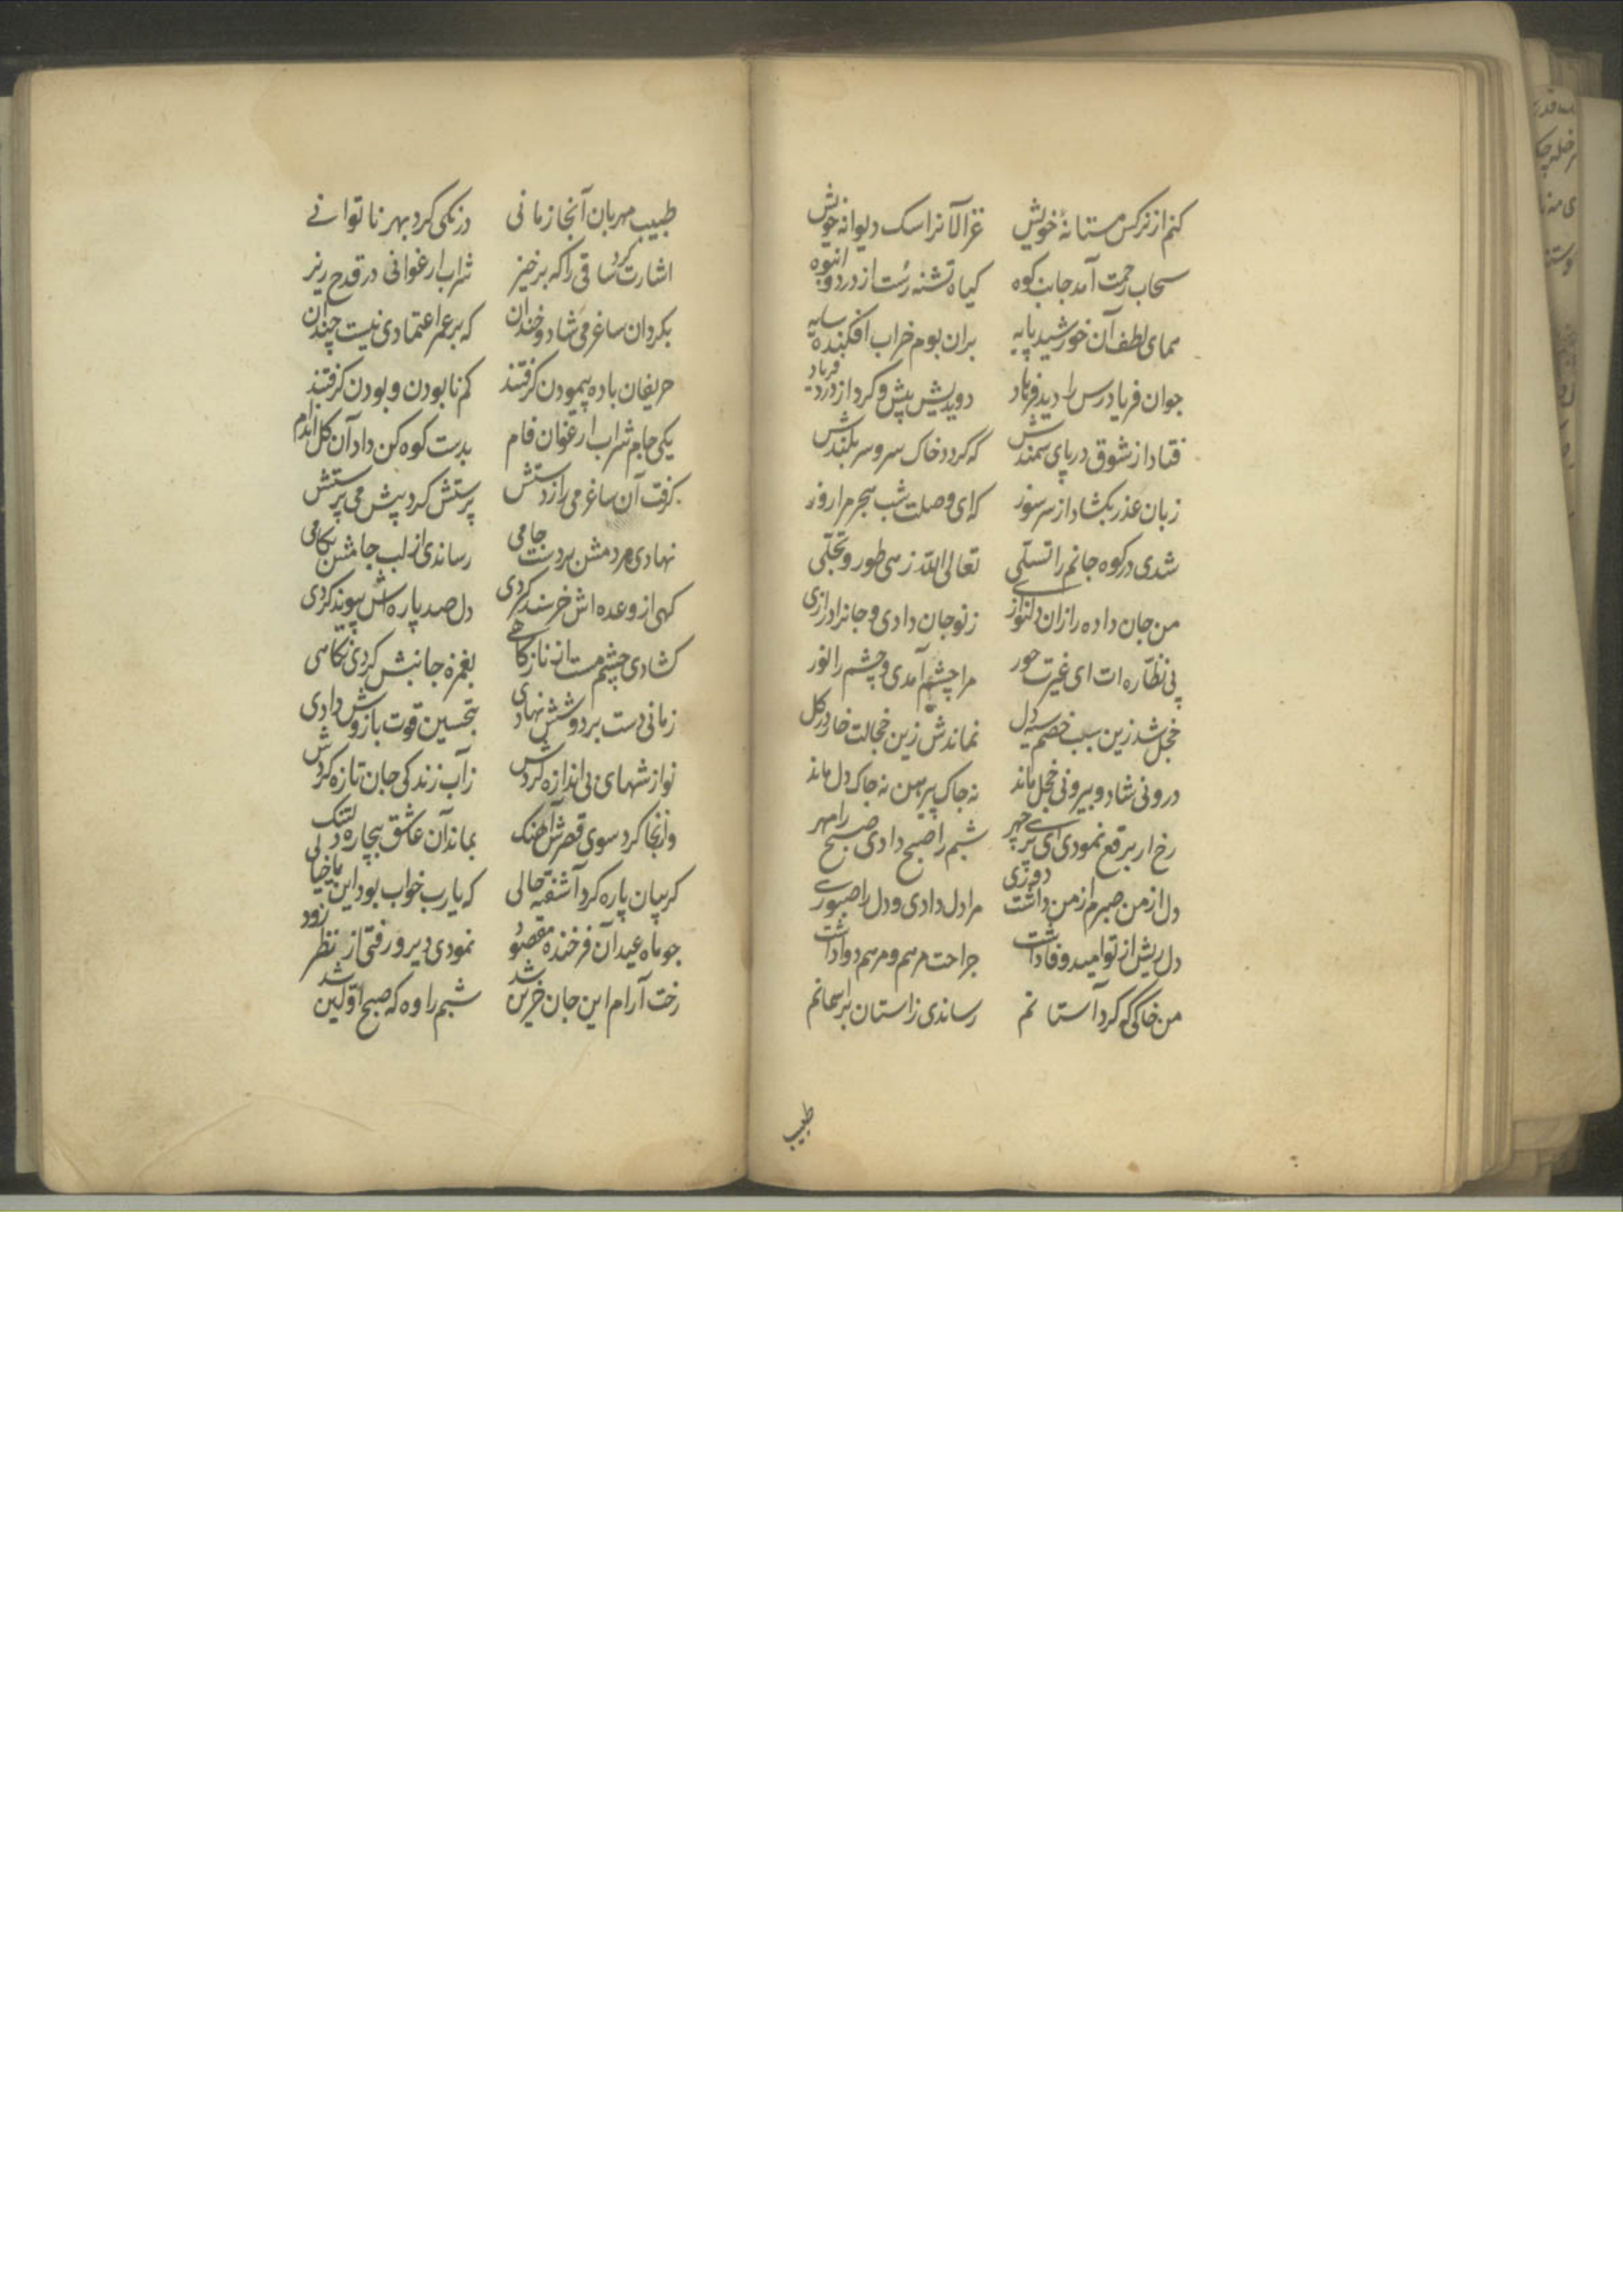 کنم از نرکس مستانهٔ خویش غزالانرا سک دیوانه خویش
سحاب رحمت آمد جانب کوه کیاه تشنه رست از درد و انبوه
همای لطف آن خورشید پایه بران بوم خراب افکنده سایه
جوان فریادرس را دید فرهاد دویدش پیش و کرد از درد فریاد
فتاد از شوق در پای سمندش که کردد خاک سر و سربلندش
زبان عذر بکشاد از سر سوز که ای وصلت شب هجر مرا روز
شدی در کوه جانم را تسلی تعالی الله زهی طور و تجلی
من جان داده را زان دلنوازی ز نو جان دادی و جانرا درازی
پی نظّاره ات ای غیرت حور مرا چشم آمدی و چشم را نور
خجل شد زین سبب خصم سیه دل نماندش زین خجالت خار در کل
درونی شاد و بیرونی خجل ماند نه چاک پیرهن نه چاک دل ماند
رخ از برقع نمودی ای پری چهر شبم را صبح دادی صبح را مهر
دل از من صبرم از من داشت دوری مرا دل دادی و دل را صبوری
دل ریش از تو امید وفا داشت جراحت مرهم و مرهم دوا داشت
من خاکی که کرد آستانم رساندی زاستان بر آسمانم
طبیب
طبیب مهربان آنجا زمانی درنکی کرد بهر ناتوانی
اشارت کرد ساقی را که برخیز شراب ارغوانی در قدح ریز
بکردان ساغر می شاد و خندان که بر عمر اعتمادی نیست چندان
حریفان باده پیمودن کرفتند کم نابودن و بودن کرفتند
یکی جام شراب ارغوان فام بدست کوه کن داد آن کل اندام
کرفت آن ساغر می را ز دستش پرستش کرد پیش می پرستش
نهادی هر دمش بر دست جامی رساندی از لب جامش بکامی
کهی از وعده اش خرسند کردی دل صد پاره اش پیوند کردی
کشادی چشم مست از ناز کاهی بغمزه جانبش کردی نکاهی
زمانی دست بر دوشش نهادی بتحسین قوت بازوش دادی
نوازشهای بی اندازه کردش ز آب زندکی جان تازه کردش
وزانجا کرد سوی قصرش آهنک بماند آن عاشق بیچاره دلتنک
کریبان پاره کرد آشفته حالی که یارب خواب بود این یا خیالی
چو ماه عید آن فرخنده مقصود نمودی دیر و رفتی از نظر زود
رخت آرام این جان حزین شد شبم را وه که صبح اولین شد